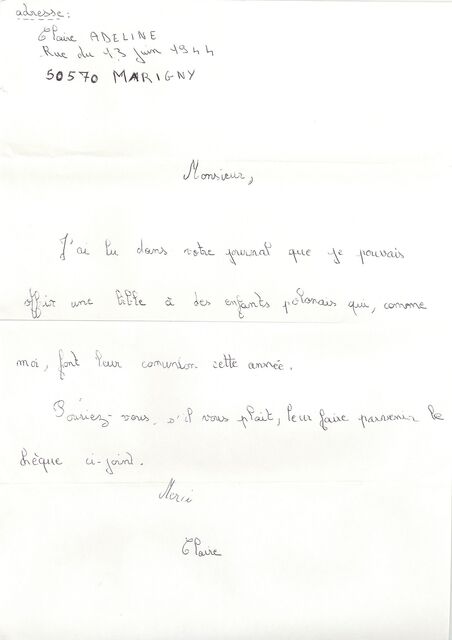 adresse:
Claire ADELINE
Rue du 13 juin 1944
50570 MARIGNY
Monsieur,
J'ai lu dans votre journal que je pouvais
offir une bible à des enfants polonais qui, comme
moi, font leur comunion cette année.
Pouriez-vous, s'il vous plait, leur faire parvenir le
chèque ci-joint.
Merci
Claire